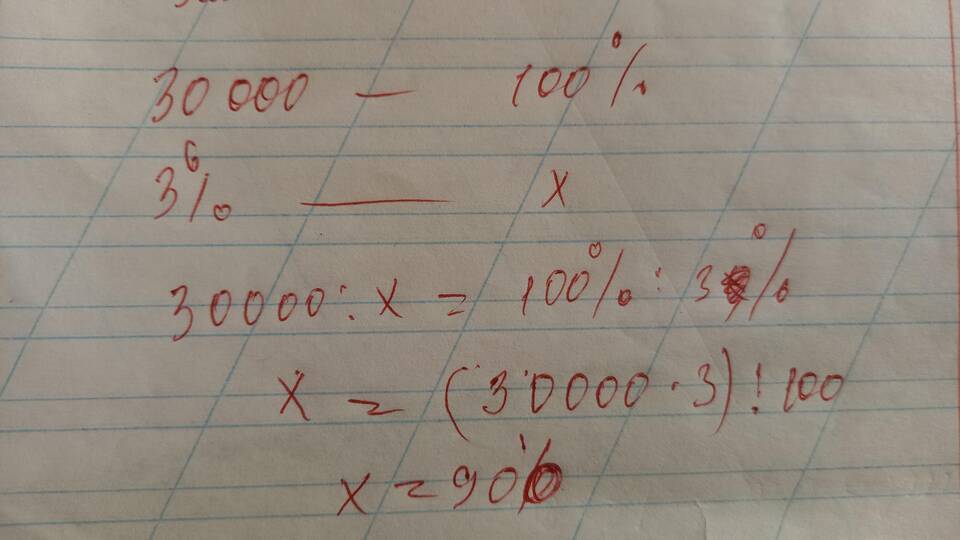 30 000 — 100%
3% — x
30000 : x = 100% : 3%
x = (30000 · 3) : 100
x = 900